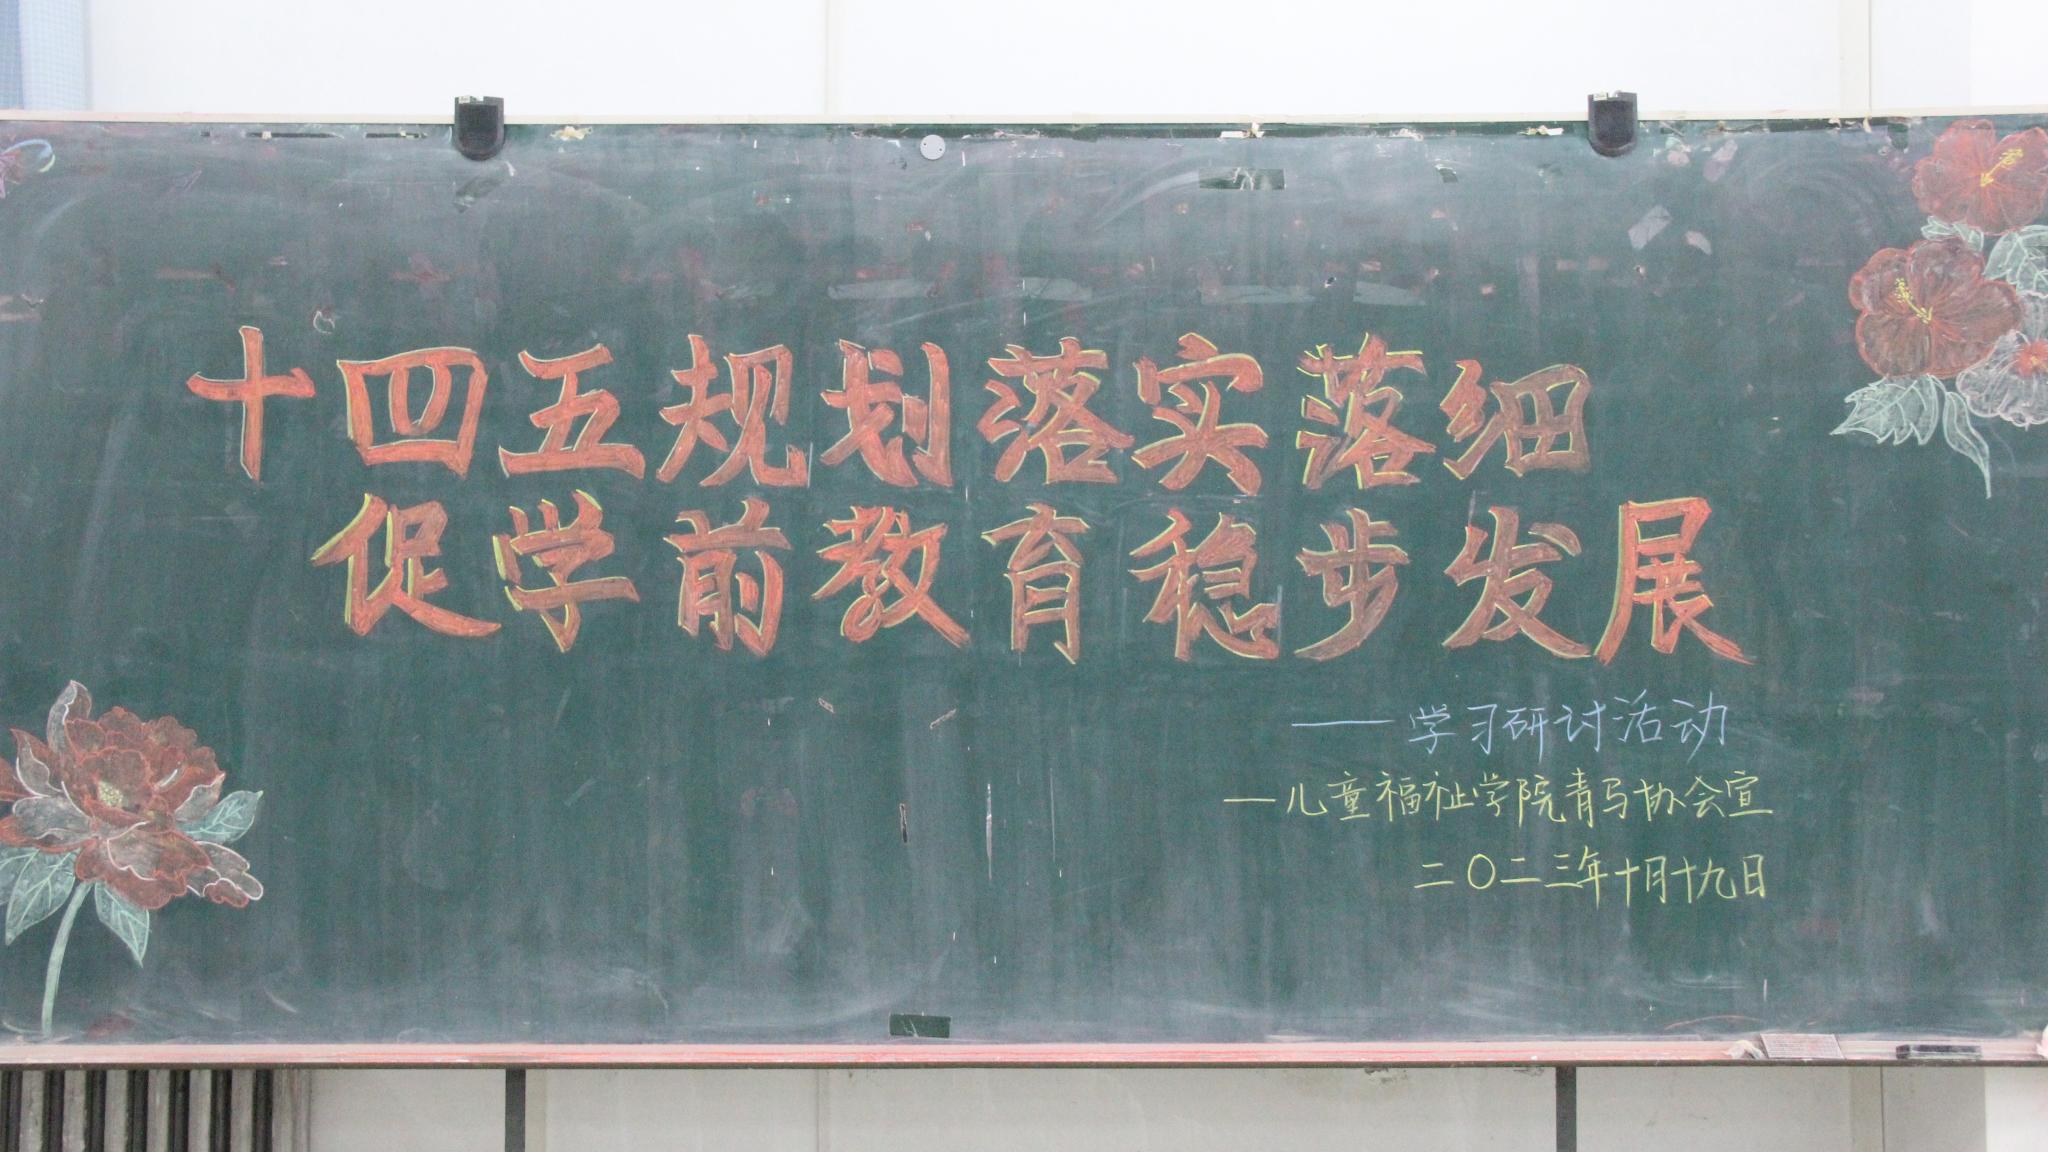 十四五规划落实落细
促学前教育稳步发展
——学习研讨活动
—儿童福祉学院青马协会宣
二〇二三年十月十九日